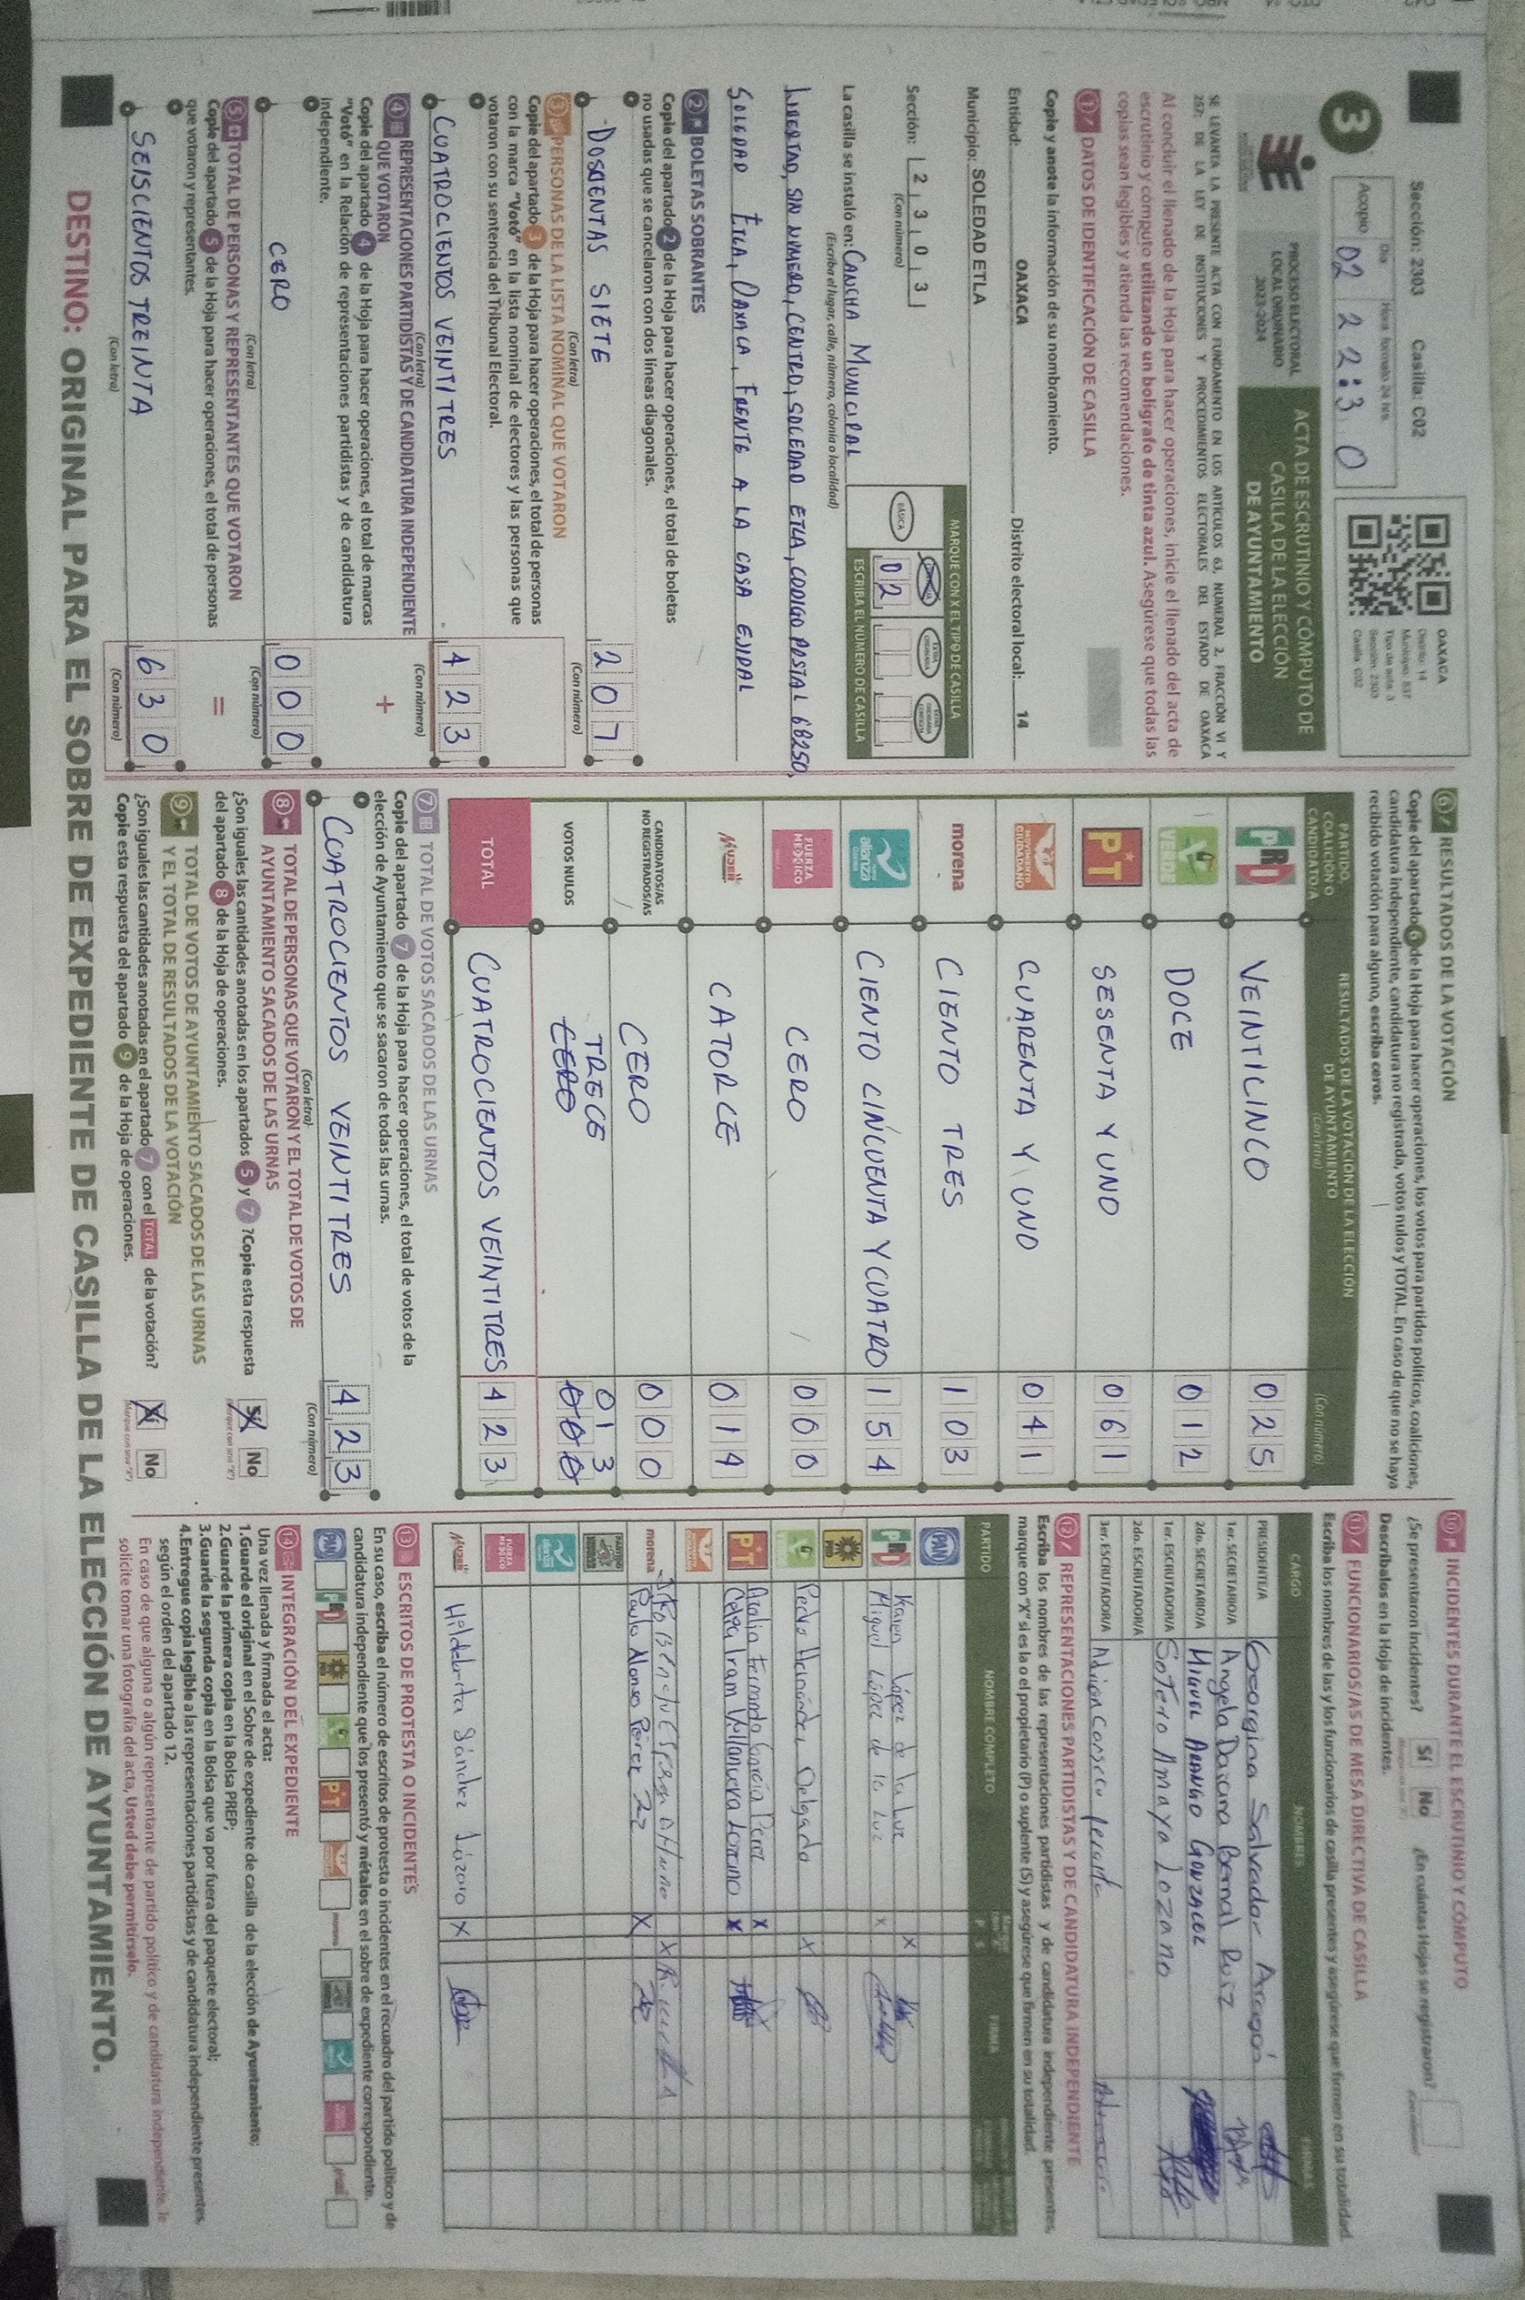 Sección: 2303 Casilla: C02
3
Día Hora: formato 24 hrs.
Acopio 02 22:30
OAXACA
Distrito: 14
Municipio: 537
Tipo de acta: 3
Sección: 2303
Casilla: C02
PROCESO ELECTORAL
LOCAL ORDINARIO
2023-2024
ACTA DE ESCRUTINIO Y CÓMPUTO DE
CASILLA DE LA ELECCIÓN
DE AYUNTAMIENTO
SE LEVANTA LA PRESENTE ACTA CON FUNDAMENTO EN LOS ARTÍCULOS 63, NUMERAL 2, FRACCIÓN VI Y
257; DE LA LEY DE INSTITUCIONES Y PROCEDIMIENTOS ELECTORALES DEL ESTADO DE OAXACA
Al concluir el llenado de la Hoja para hacer operaciones, inicie el llenado del acta de
escrutinio y cómputo utilizando un bolígrafo de tinta azul. Asegúrese que todas las
copias sean legibles y atienda las recomendaciones.
1 DATOS DE IDENTIFICACIÓN DE CASILLA
Copie y anote la información de su nombramiento.
Entidad: OAXACA Distrito electoral local: 14
Municipio: SOLEDAD ETLA
Sección: 2 3 0 3
(Con número)
MARQUE CON X EL TIPO DE CASILLA
BÁSICA
02
ESCRIBA EL NÚMERO DE CASILLA
La casilla se instaló en: CANCHA MUNICIPAL
(Escriba el lugar, calle, número, colonia o localidad)
LIBERTAD, SIN NUMERO, CENTRO, SOLEDAD ETLA, CODIGO POSTAL 68250,
SOLEDAD ETLA, OAXACA, FRENTE A LA CASA EJIDAL
2 BOLETAS SOBRANTES
Copie del apartado 2 de la Hoja para hacer operaciones, el total de boletas
no usadas que se cancelaron con dos líneas diagonales.
DOSCIENTAS SIETE 207
(Con letra) (Con número)
3 PERSONAS DE LA LISTA NOMINAL QUE VOTARON
Copie del apartado 3 de la Hoja para hacer operaciones, el total de personas
con la marca "Votó" en la lista nominal de electores y las personas que
votaron con su sentencia del Tribunal Electoral.
CUATROCIENTOS VEINTITRES 423
(Con letra) (Con número)
4 REPRESENTACIONES PARTIDISTAS Y DE CANDIDATURA INDEPENDIENTE
QUE VOTARON +
Copie del apartado 4 de la Hoja para hacer operaciones, el total de marcas
"Votó" en la Relación de representaciones partidistas y de candidatura
independiente.
CERO 000
(Con letra) (Con número)
5 TOTAL DE PERSONAS Y REPRESENTANTES QUE VOTARON =
Copie del apartado 5 de la Hoja para hacer operaciones, el total de personas
que votaron y representantes.
SEISCIENTOS TREINTA 630
(Con letra) (Con número)
6 RESULTADOS DE LA VOTACIÓN
Copie del apartado 6 de la Hoja para hacer operaciones, los votos para partidos políticos, coaliciones,
candidatura independiente, candidatura no registrada, votos nulos y TOTAL. En caso de que no se haya
recibido votación para alguno, escriba ceros.
PARTIDO,
COALICIÓN O
CANDIDATO/A
RESULTADOS DE LA VOTACIÓN DE LA ELECCIÓN
DE AYUNTAMIENTO
(Con letra) (Con número)
PRI VEINTICINCO 025
VERDE DOCE 012
PT SESENTA Y UNO 061
MOVIMIENTO CIUDADANO CUARENTA Y UNO 041
morena CIENTO TRES 103
nueva alianza CIENTO CINCUENTA Y CUATRO 154
FUERZA MEXICO CERO 000
MUJER CATORCE 014
CANDIDATOS/AS
NO REGISTRADOS/AS CERO 000
TRECE 013
VOTOS NULOS CERO 000
TOTAL CUATROCIENTOS VEINTITRES 423
7 TOTAL DE VOTOS SACADOS DE LAS URNAS
Copie del apartado 7 de la Hoja para hacer operaciones, el total de votos de la
elección de Ayuntamiento que se sacaron de todas las urnas.
CUATROCIENTOS VEINTITRES 423
(Con letra) (Con número)
8 TOTAL DE PERSONAS QUE VOTARON Y EL TOTAL DE VOTOS DE
AYUNTAMIENTO SACADOS DE LAS URNAS
¿Son iguales las cantidades anotadas en los apartados 5 y 7 ? Copie esta respuesta
del apartado 8 de la Hoja de operaciones.
Sí No
9 TOTAL DE VOTOS DE AYUNTAMIENTO SACADOS DE LAS URNAS
Y EL TOTAL DE RESULTADOS DE LA VOTACIÓN
¿Son iguales las cantidades anotadas en el apartado 7 con el TOTAL de la votación?
Copie esta respuesta del apartado 9 de la Hoja de operaciones.
Sí No
10 INCIDENTES DURANTE EL ESCRUTINIO Y CÓMPUTO
¿Se presentaron incidentes? Sí No ¿En cuántas Hojas se registraron?
Descríbalos en la Hoja de incidentes.
11 FUNCIONARIOS/AS DE MESA DIRECTIVA DE CASILLA
Escriba los nombres de las y los funcionarios de casilla presentes y asegúrese que firmen en su totalidad.
CARGO NOMBRES FIRMAS
PRESIDENTE/A Georgina Salvador Aragón
1er. SECRETARIO/A Angela Daiana Bernal Ruiz
2do. SECRETARIO/A MIGUEL ARANGO GONZALEZ
1er. ESCRUTADOR/A Sotero Amaya Lozano
2do. ESCRUTADOR/A
3er. ESCRUTADOR/A Adrian
12 REPRESENTACIONES PARTIDISTAS Y DE CANDIDATURA INDEPENDIENTE
Escriba los nombres de las representaciones partidistas y de candidatura independiente presentes,
marque con "X" si es la o el propietario (P) o suplente (S) y asegúrese que firmen en su totalidad.
PARTIDO NOMBRE COMPLETO P S FIRMA
PAN
PRI Karen López de la Luz X
Miguel López de la Luz X
PRD
VERDE Pedro Hernández Delgado X
PT Analia Fernanda García Pérez X
Celia Iram Villanueva Lorenzo X
morena X
Paula Alonso Pérez X
nueva alianza
FUERZA MEXICO
MUJER Hildeberta Sánchez Lázaro X
13 ESCRITOS DE PROTESTA O INCIDENTES
En su caso, escriba el número de escritos de protesta o incidentes en el recuadro del partido político y de
candidatura independiente que los presentó y métalos en el sobre de expediente correspondiente.
PAN PRI PRD VERDE PT
14 INTEGRACIÓN DEL EXPEDIENTE
Una vez llenada y firmada el acta:
1.Guarde el original en el Sobre de expediente de casilla de la elección de Ayuntamiento;
2.Guarde la primera copia en la Bolsa PREP;
3.Guarde la segunda copia en la Bolsa que va por fuera del paquete electoral;
4.Entregue copia legible a las representaciones partidistas y de candidatura independiente presentes,
según el orden del apartado 12.
En caso de que alguna o algún representante de partido político y de candidatura independiente, le
solicite tomar una fotografía del acta, Usted debe permitírselo.
DESTINO: ORIGINAL PARA EL SOBRE DE EXPEDIENTE DE CASILLA DE LA ELECCIÓN DE AYUNTAMIENTO.